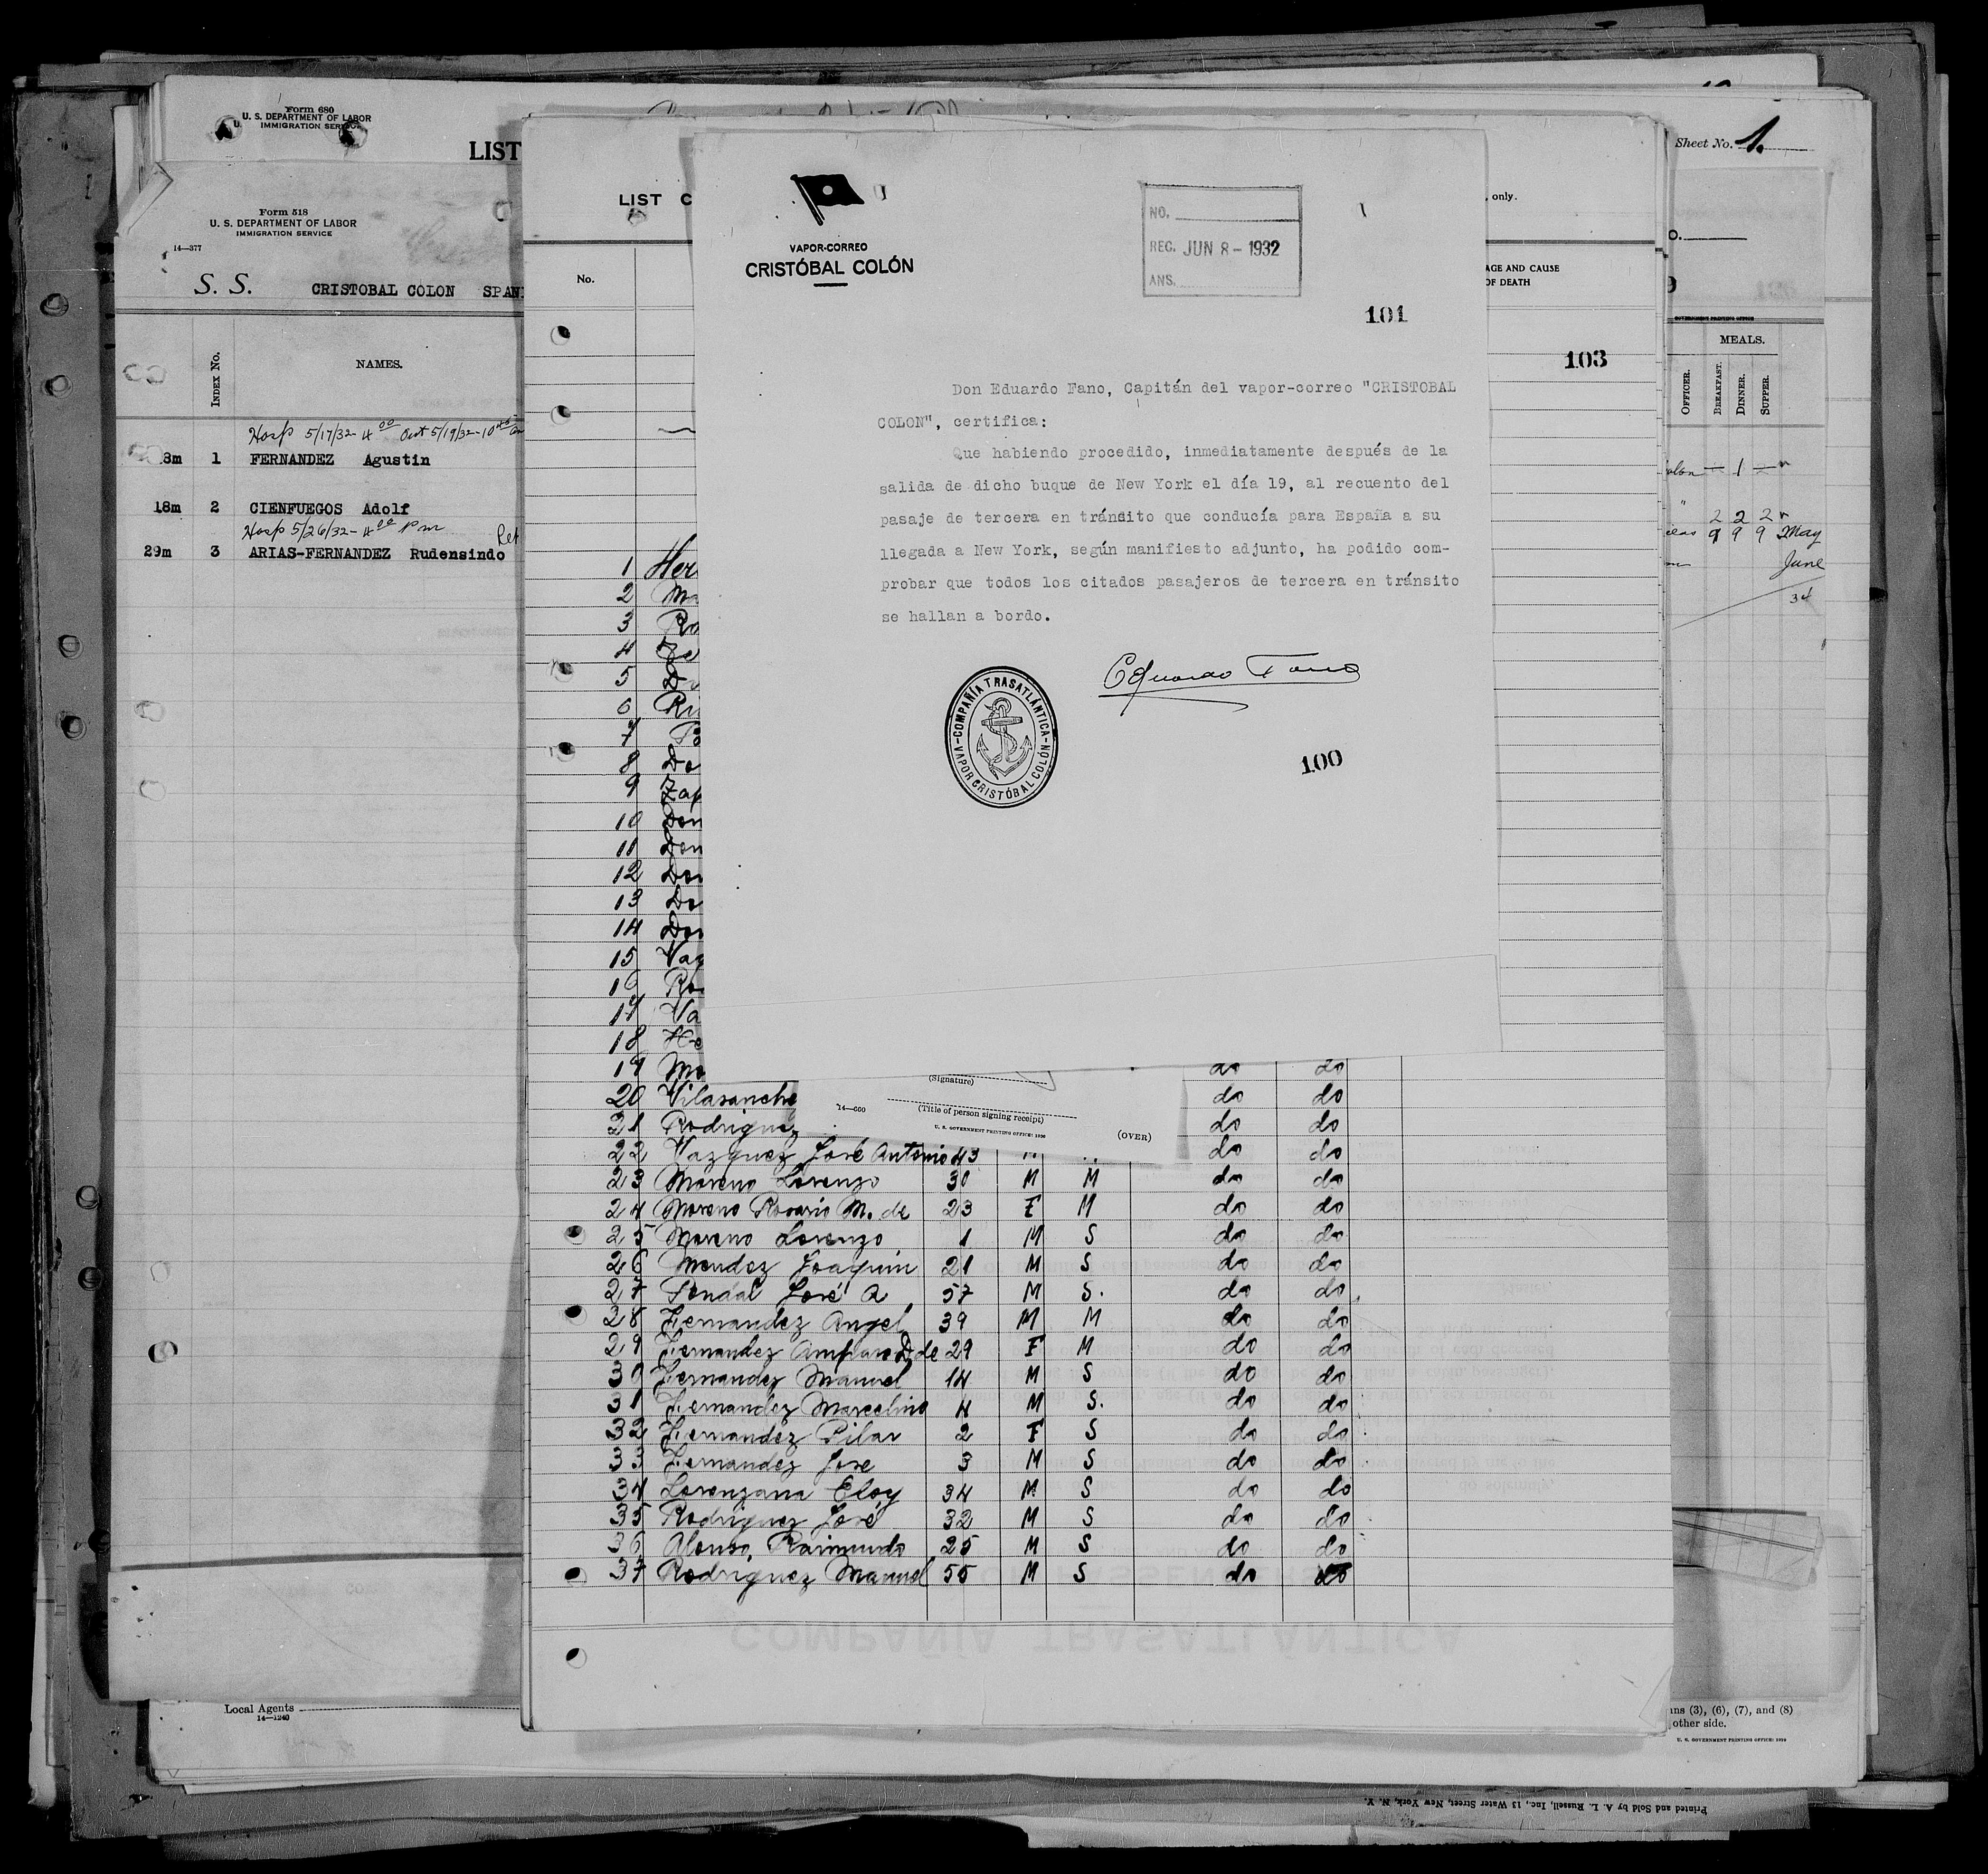 Form 680
U. S. DEPARTMENT OF LABOR
IMMIGRATION SERVICE
LIST
Sheet No. 1.
Form 518
U. S. DEPARTMENT OF LABOR
IMMIGRATION SERVICE
14—377
S. S. CRISTOBAL COLON SPAN
INDEX No.
NAMES.
Hosp 5/17/32- 4 00 Out 5/19/32- 10 45 am
18m 1 FERNANDEZ Agustin
18m 2 CIENFUEGOS Adolf
Hosp 5/26/32- 4 00 Pm
29m 3 ARIAS-FERNANDEZ Rudensindo
LIST
, only.
No.
AGE AND CAUSE
OF DEATH
103
VAPOR-CORREO
CRISTÓBAL COLÓN
NO.
REC. JUN 8 - 1932
ANS.
101
Don Eduardo Fano, Capitán del vapor-correo "CRISTOBAL
COLON", certifica:
Que habiendo procedido, inmediatamente después de la
salida de dicho buque de New York el día 19, al recuento del
pasaje de tercera en tránsito que conducía para España a su
llegada a New York, según manifiesto adjunto, ha podido com-
probar que todos los citados pasajeros de tercera en tránsito
se hallan a bordo.
Eduardo Fano
COMPAÑÍA TRASATLÁNTICA
VAPOR CRISTÓBAL COLÓN
100
OFFICER.
MEALS.
BREAKFAST.
DINNER.
SUPPER.
olon — 1 —
2 2 2
9 9 9 May
June
34
1 Her
2
3 Ro
4
5
6
7
8
9 Zap
10
11
12
13
14
15
16
17 Va
18
19 do do
20 Vilasanche do do
21 Rodriguez do do
22 Vazquez José Antonio 43 do do
23 Moreno Lorenzo 30 M M do do
24 Moreno Rosario M. de 23 F M do do
25 Moreno Lorenzo 1 M S do do
26 Mendez Joaquin 21 M S do do
27 José A 57 M S. do do
28 Fernandez Angel 39 M M do do
29 Fernandez Amparo D. de 29 F M do do
30 Fernandez Manuel 14 M S do do
31 Fernandez Marcelino 4 M S. do do
32 Fernandez Pilar 2 F S do do
33 Fernandez Jose 3 M S do do
34 Lorenzana Eloy 34 M S do do
35 Rodriguez José 32 M S do do
36 Alonso, Raimundo 25 M S do do
37 Rodriguez Manuel 55 M S do do
(Signature)
14—660
(Title of person signing receipt)
U. S. GOVERNMENT PRINTING OFFICE: 1930
(OVER)
COMPAÑÍA TRASATLÁNTICA
Local Agents
14—1240
(3), (6), (7), and (8)
other side.
U. S. GOVERNMENT PRINTING OFFICE: 1930
Printed and Sold by A. L. Russell, Inc., 13 Water Street, New York, N. Y.